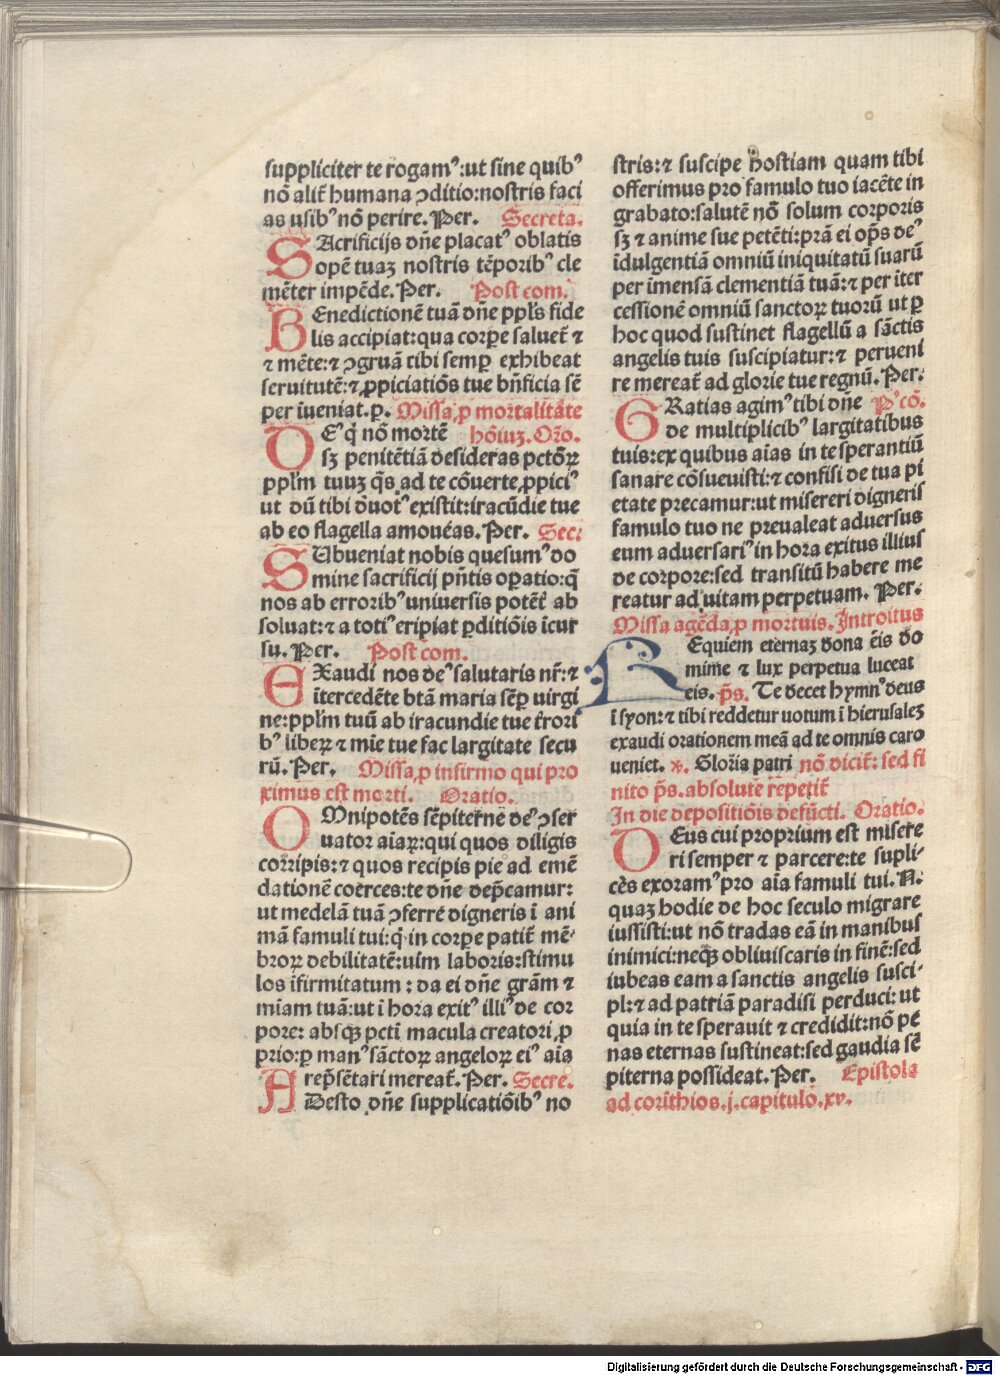 suppliciter te rogamꝰ:ut sine quibꝰ
nō alit̄ humana ꝯditio:nostris faci
as usibꝰ nō perire.Per. Secreta.
SAcrificijs dn̄e placatꝰ oblatis
opē tuaꝫ nostris tēporibꝰ cle
mēter impēde.Per. Post com.
BEnedictionē tuā dn̄e ppl̄s fide
lis accipiat:qua corꝑe saluet̄ ⁊
⁊ mēte:⁊ ꝯgruā tibi semꝑ exhibeat
seruitutē:⁊ ꝓpiciatiōs tue bn̄ficia sē
per īueniat.p. Missa ꝓ mortalitate
DE⁹ q̄ nō mortē hōiuꝫ.Or̄o.
sꝫ penitētiā desideras pctōꝝ
ppl̄m tuuꝫ q̄s ad te cōuerte ꝓpiciꝰ
ut dū tibi ꝺuotꝰ existit:iracūdie tue
ab eo flagella amoueas.Per. Sec:
SUbueniat nobis quesumꝰ do
mine sacrificij pn̄tis oꝑatio:q̄
nos ab erroribꝰ uniuersis potēt̄ ab
soluat:⁊ a totiꝰ eripiat ꝑditiōis īcur
su.Per. Post com.
EXaudi nos deꝰ salutaris nr̄:⁊
ītercedēte btā maria sēꝑ uirgi
ne:ppl̄m tuū ab iracundie tue t̄rori
bꝰ libeꝝ ⁊ mīe tue fac largitate secu
rū.Per. Missa ꝓ infirmo qui pro
ximus est morti. Oratio.
OMnipotēs sēpiterne deꝰ ꝯser
uator aīaꝝ:qui quos diligis
corripis:⁊ quos recipis pie ad emē
dationē coerces:te dn̄e dep̄camur:
ut medelā tuā ꝯferre digneris ī ani
mā famuli tui:q̄ in corꝑe patit̄ mē
broꝝ debilitatē:uim laboris:stimu
los īfirmitatum : da ei dn̄e grām ⁊
miam tuā:ut ī hora exitꝰ illiꝰ de cor
pore: absqꝫ pcti macula creatori ꝓ
prio:ꝑ manꝰ sāctoꝝ angeloꝝ eiꝰ aīa
rep̄sētari mereat̄.Per. Secre.
ADesto dn̄e supplicatiōibꝰ no
stris:⁊ suscipe hostiam quam tibi
offerimus pro famulo tuo iacēte in
grabato:salutē nō solum corporis
sꝫ ⁊ anime sue petēti:prā ei op̄s deꝰ
īdulgentiā omniū iniquitatū suarū
per imensā clementiā tuā:⁊ per iter
cessionē omniū sanctoꝝ tuorū ut ꝑ
hoc quod sustinet flagellū a sāctis
angelis tuis suscipiatur:⁊ perueni
re mereat̄ ad glorie tue regnū.Per:
GRatias agimꝰ tibi dn̄e Pꝰcō.
de multiplicibꝰ largitatibus
tuis:ex quibus aīas in te sperantiū
sanare cōsueuisti:⁊ confisi de tua pi
etate precamur:ut misereri digneris
famulo tuo ne preualeat aduersus
eum aduersariꝰ in hora exitus illius
de corpore:sed transitū habere me
reatur ad uitam perpetuam. Per:
Missa agēda ꝓ mortuis.Introitus
REquiem eternaꝫ dona eis do
mine ⁊ lux perpetua luceat
eis. p̄s. Te decet hymnꝰ deus
ī syon:⁊ tibi reddetur uotum ī hierusaleꝫ
exaudi orationem meā ad te omnis caro
ueniet. ℣. Gloria patri nō dicit̄: sed fi
nito p̄s.absolute repetit̄
In die depositiōis defūcti. Oratio.
DEus cui proprium est misere
ri semper ⁊ parcere:te supli
ces exoramꝰ pro aīa famuli tui.N.
quaꝫ hodie de hoc seculo migrare
iussisti:ut nō tradas eā in manibus
inimici:neqꝫ obliuiscaris in finē:sed
iubeas eam a sanctis angelis susci
pi:⁊ ad patriā paradisi perduci: ut
quia in te sperauit ⁊ credidit:nō pe
nas eternas sustineat:sed gaudia sē
piterna possideat.Per. Epistola
ad corīthios.j.capitulo.xv.
Digitalisierung gefördert durch die Deutsche Forschungsgemeinschaft - DFG